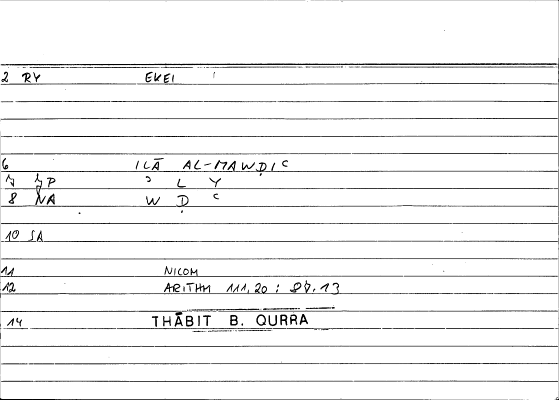 2 RY EKEI
6 ILĀ AL-MAWḌIʿ
7 JP ʾ L Y
8 NA W Ḍ ʿ
10 SA
11 NICOM
12 ARITHM 111,20 : 87.13
14 THĀBIT B. QURRA